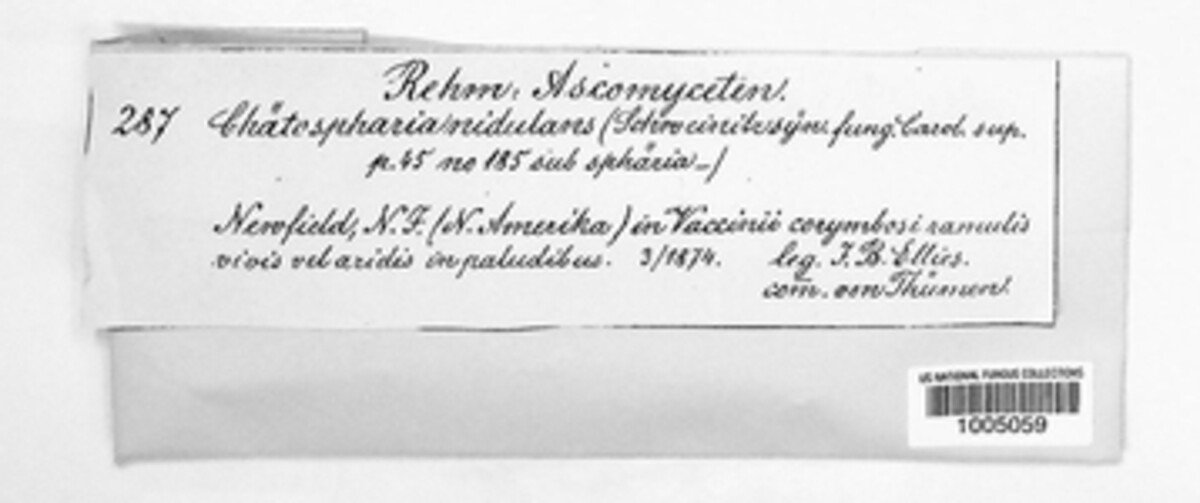 Rehm: Ascomyceten.
287 Chätosphäria nidulans (Schweinitz syn. fung. Carol. sup.
p. 45 no 185 sub sphäria -)
Newfield, N. J. (N. Amerika) in Vaccinii corymbosi ramulis
vivis vel aridis in paludibus. 3/1874. leg. J. B. Ellis.
com. von Thümen.
US NATIONAL FUNGUS COLLECTIONS
1005059